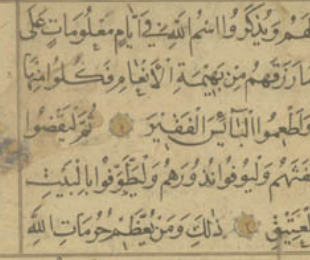 لهم ويذكروا اسم الله في أيام معلومات على
ما رزقهم من بهيمة الأنعام فكلوا منها
وأطعموا البائس الفقير ثم ليقضوا
تفثهم وليوفوا نذورهم وليطوفوا بالبيت
العتيق ذلك ومن يعظم حرمات الله